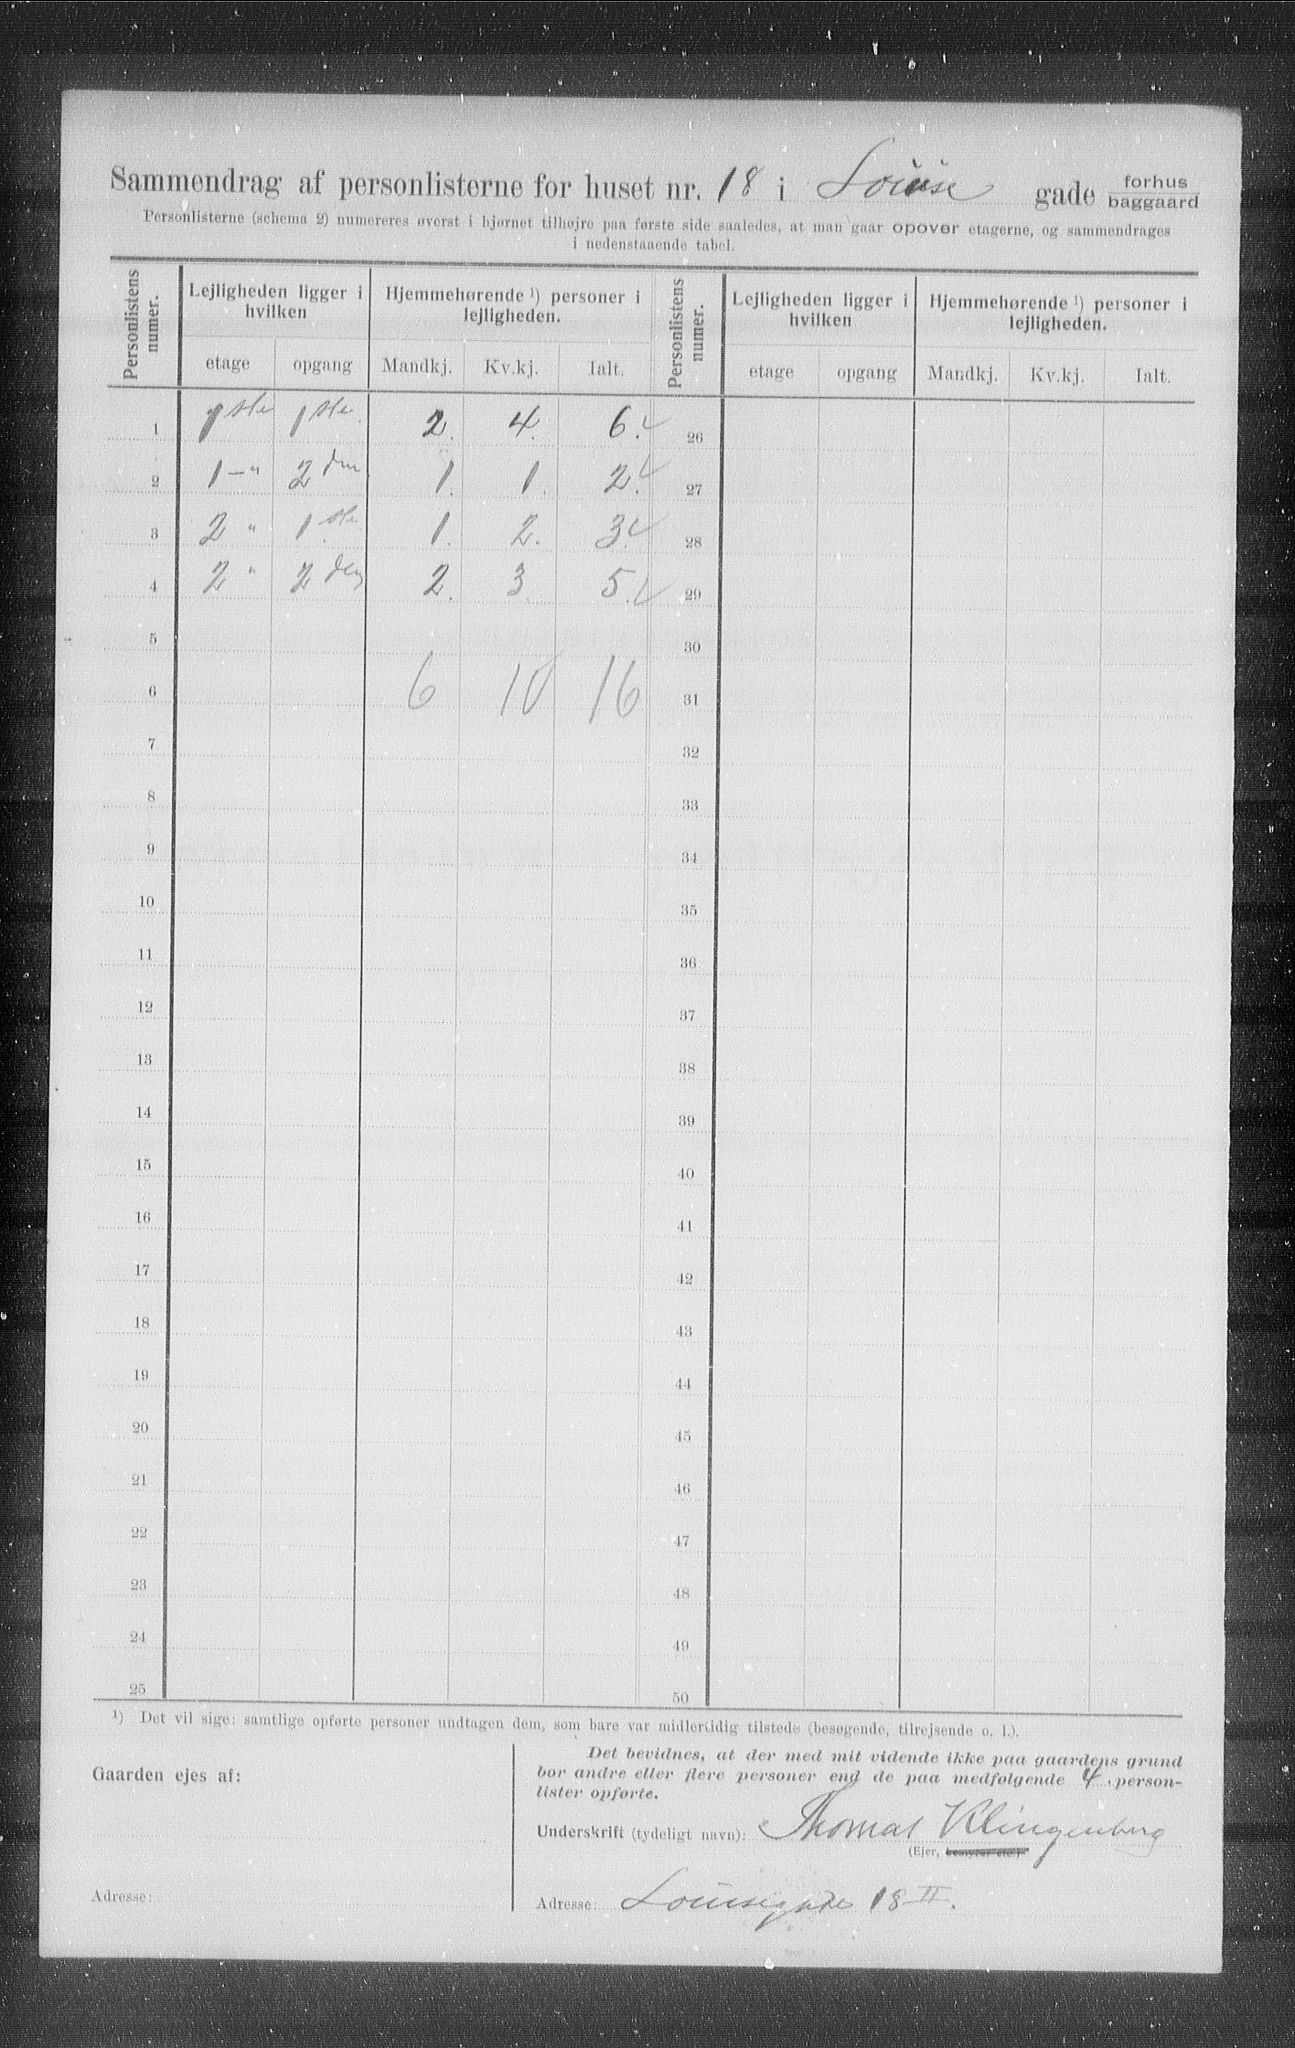 Sammendrag af personlisterne for huset nr. 18 i Louise gade forhus baggaard
Personlisterne (schema 2) numereres øverst i hjørnet tilhøjre paa første side saaledes, at man gaar opover etagerne, og sammendrages
i nedenstaaende tabel.
Personlistens numer. Lejligheden ligger i hvilken Hjemmehørende ¹) personer i lejligheden. Personlistens numer. Lejligheden ligger i hvilken Hjemmehørende ¹) personer i lejligheden.
etage opgang Mandkj. Kv.kj. Ialt. etage opgang Mandkj. Kv.kj. Ialt.
1 1ste 1ste 2. 4. 6. 26
2 1 - " 2den 1. 1. 2. 27
3 2 " 1ste 1. 2. 3. 28
4 2 " 2den 2. 3. 5. 29
5 30
6 6 10 16 31
7 32
8 33
9 34
10 35
11 36
12 37
13 38
14 39
15 40
16 41
17 42
18 43
19 44
20 45
21 46
22 47
23 48
24 49
25 50
¹) Det vil sige: samtlige opførte personer undtagen dem, som bare var midlertidig tilstede (besøgende, tilrejsende o. l.).
Gaarden ejes af:
Adresse:
Det bevidnes, at der med mit vidende ikke paa gaardens grund
bor andre eller flere personer end de paa medfølgende 4 person-
lister opførte.
Underskrift (tydeligt navn): Thomas Klingenberg
(Ejer, bestyrer etc.)
Adresse: Louisegade 18 II.